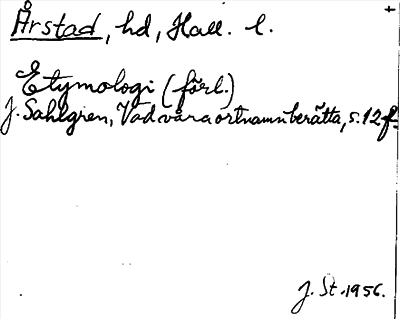 Årstad, hd, Hall. l.
Etymologi (förl.)
J. Sahlgren, Vad våra ortnamn berätta, s. 12 f.
J. St. 1956.